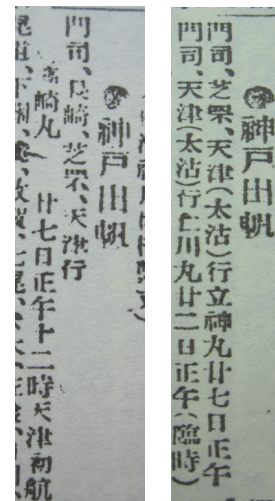 神戸出帆
門司、芝罘、天津(太沽)行立神丸廿七日正午
門司、天津(太沽)行仁川丸廿二日正午(臨時)
神戸出帆
門司、長崎、芝罘、天津行
崎丸 廿七日正午十二時天津初航